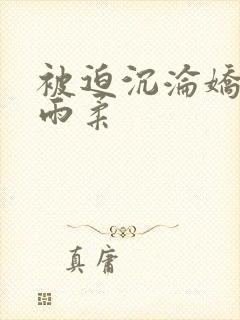 被迫沉沦娇
雨柔
真庸